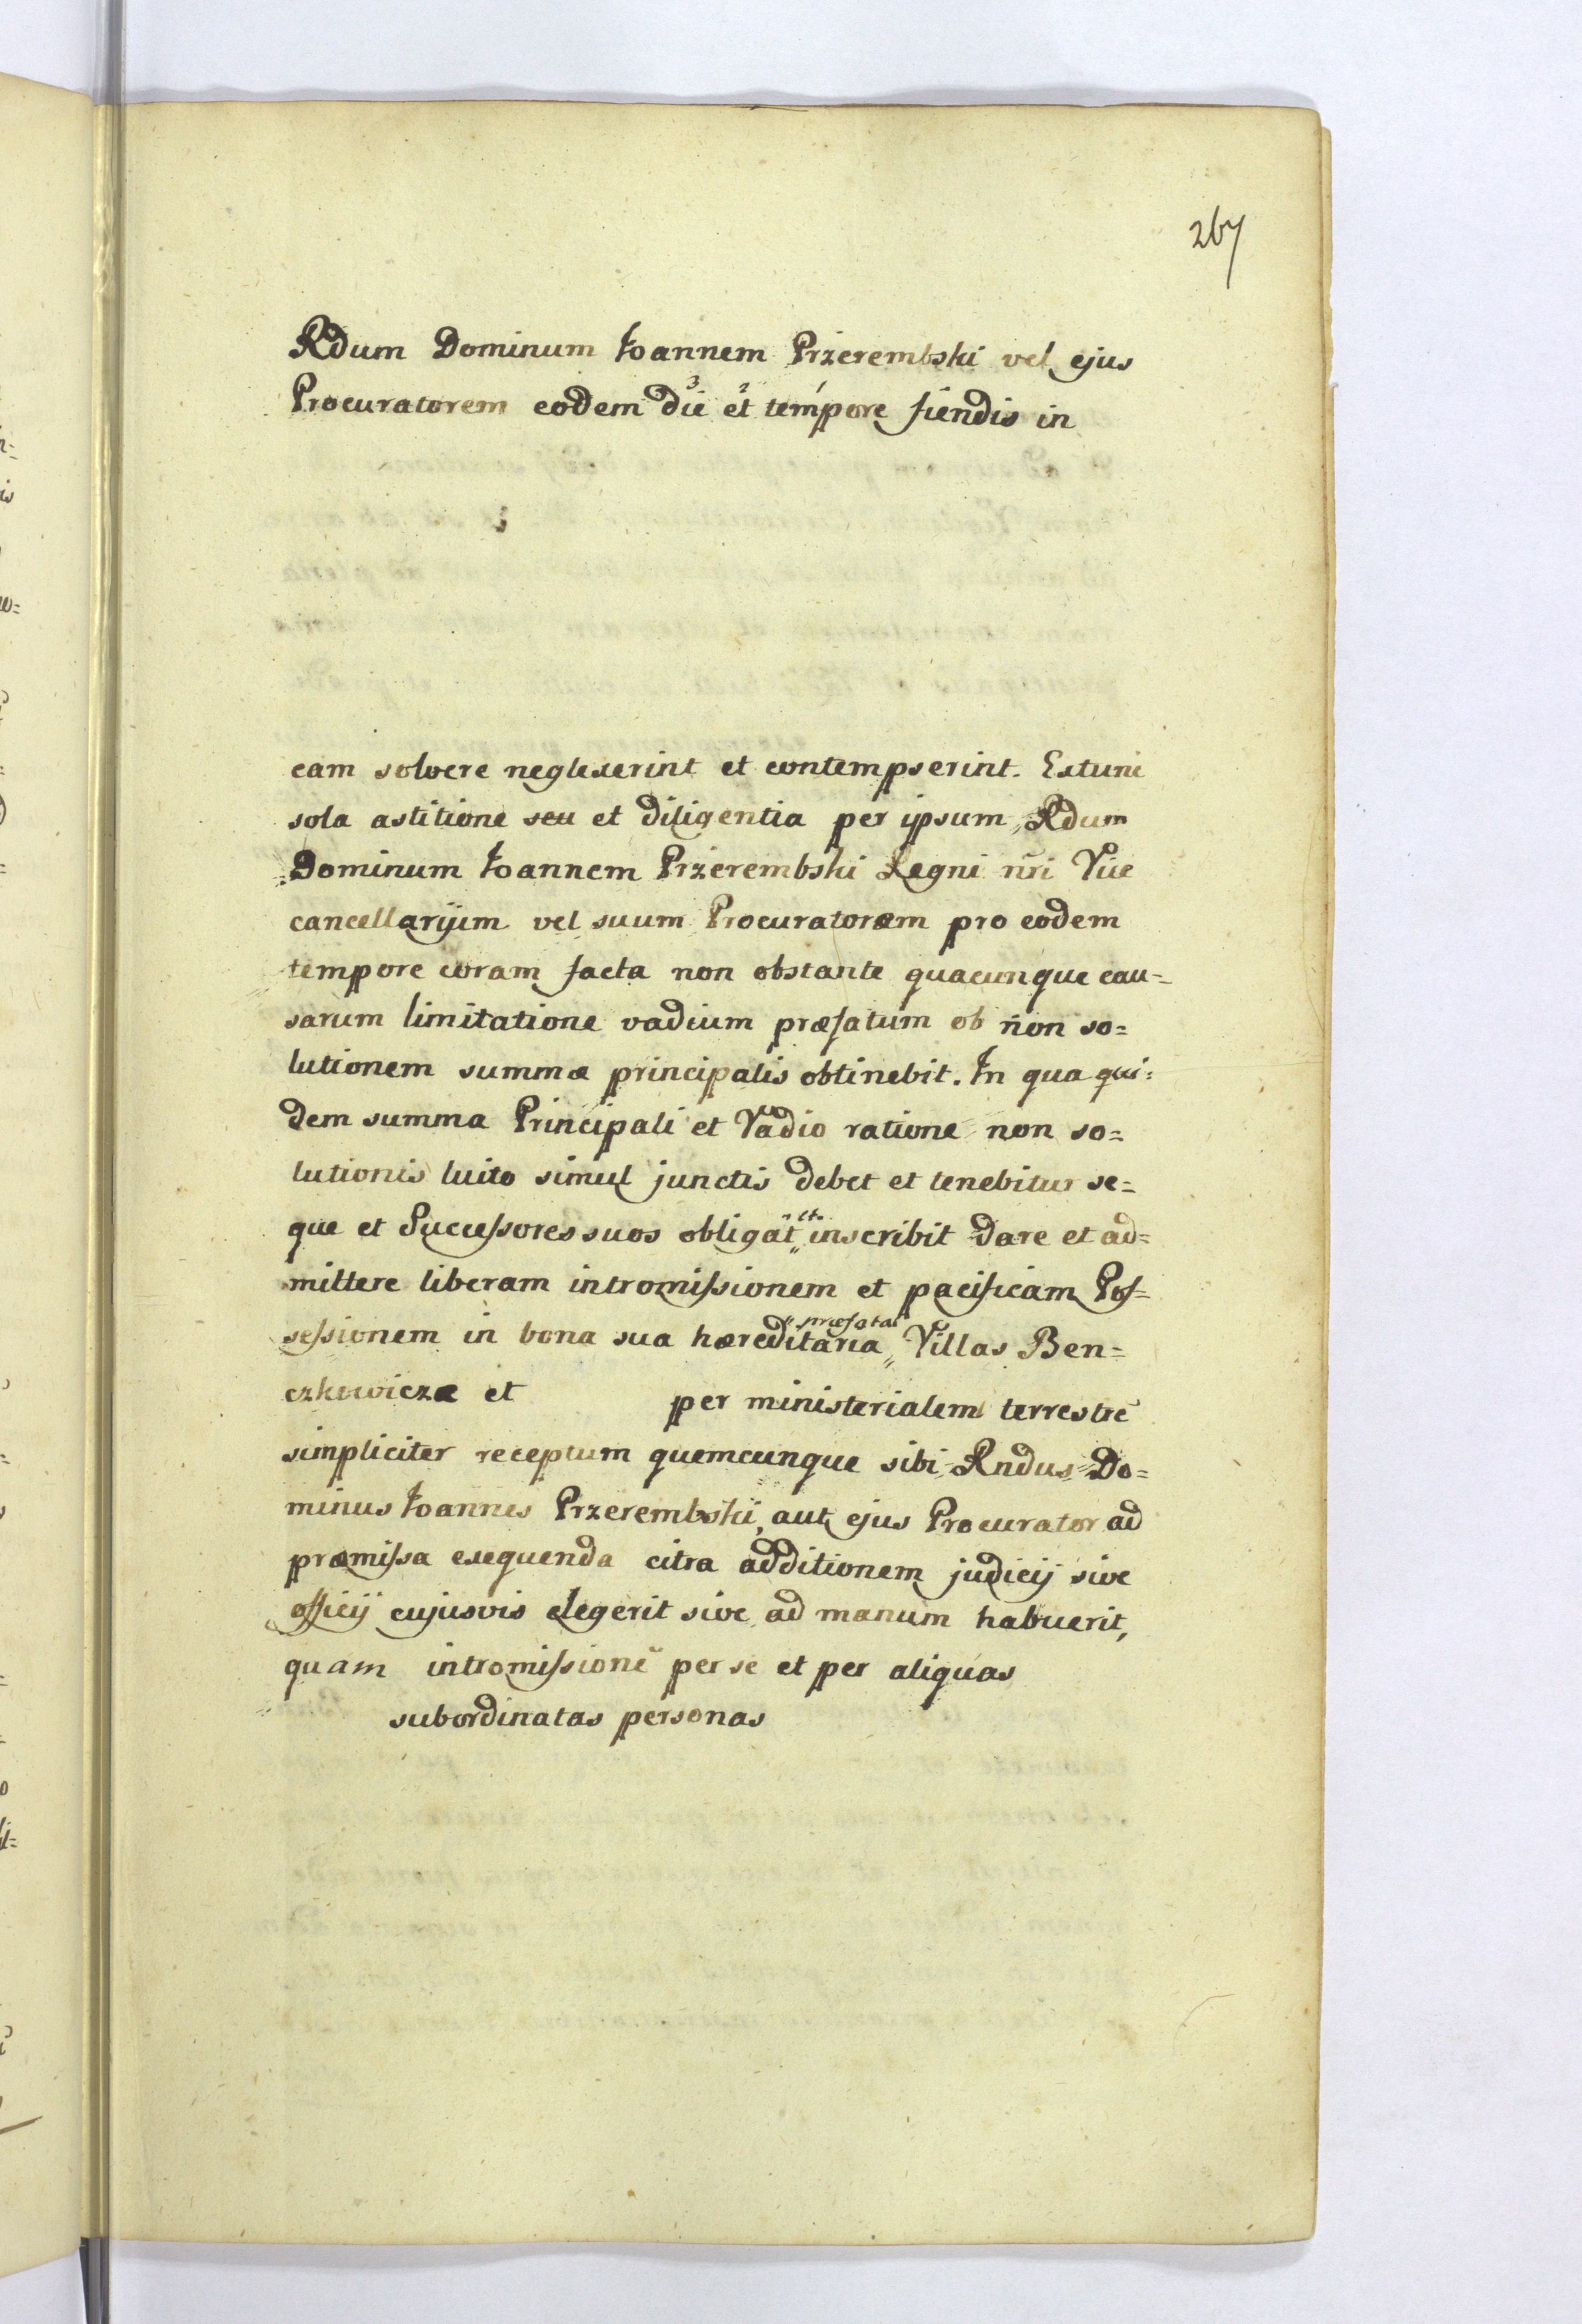 267
Rdum Dominum Joannem Przerembski vel ejus
Procuratorem eodem die³ et² tempore¹ fiendis in
eam solvere neglexerint et contempserint. Extunc
sola astitione seu et diligentia per ipsum „Rdum
„Dominum Joannem Przerembski Regni nr̃i Vice
cancellarijum vel suum Procuratorem pro eodem
tempore coram facta non obstante quacunque cau-
sarum limitatione vadium præfatum ob non so=
lutionem summæ principalis obtinebit. In qua qui=
dem summa Principali et Vadio ratione non so=
lutionis luito simul junctis debet et tenebitur se=
que et Successores suos obligat „et„ inscribit dare et ad=
mittere liberam intromissionem et pacificam Pos=
sessionem in bona sua hæreditaria „præfatas„ Villas Ben=
czkowicze et per ministerialem terrestrē
simpliciter receptum quemcunque sibi Rndus Do=
minus Joannes Przerembski, aut ejus Procurator ad
præmissa exequenda citra additionem judicij sive
officij cujusvis elegerit sive ad manum habuerit,
quam intromissionē per se et per aliquas
subordinatas personas